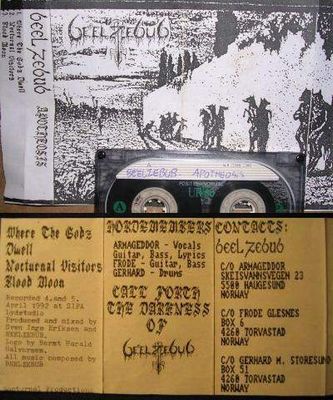 Where The Godz Dwell
Nocturnal Visitors
Blood Moon
BEELZEBUB
APOTHEOSIS
BEELZEBUB
BEELZEBUB APOTHEOSIS
Where The Godz
Dwell
Nocturnal Visitors
Blood Moon
Recorded 4.and 5.
April 1992 at DIPA
lydstudio
Produced and mixed by
Sven Inge Eriksen and
BEELZEBUB.
Logo by Bernt Harald
Halvorsen.
All music composed by
BEELZEBUB
Nocturnal Productions
HORDEMEMBERS
ARMAGEDDOR - Vocals
Guitar, Bass, Lyrics
FRODE - Guitar, Bass
GERHARD - Drums
CALL FORTH
THE DARKNESS
OF
BEELZEBUB
CONTACTS:
BEELZEBUB
C/O ARMAGEDDOR
SKEISVANNSVEGEN 23
5500 HAUGESUND
NORWAY
C/O FRODE GLESNES
BOX 6
4260 TORVASTAD
NORWAY
C/O GERHARD M. STORESUND
BOX 51
4260 TORVASTAD
NORWAY